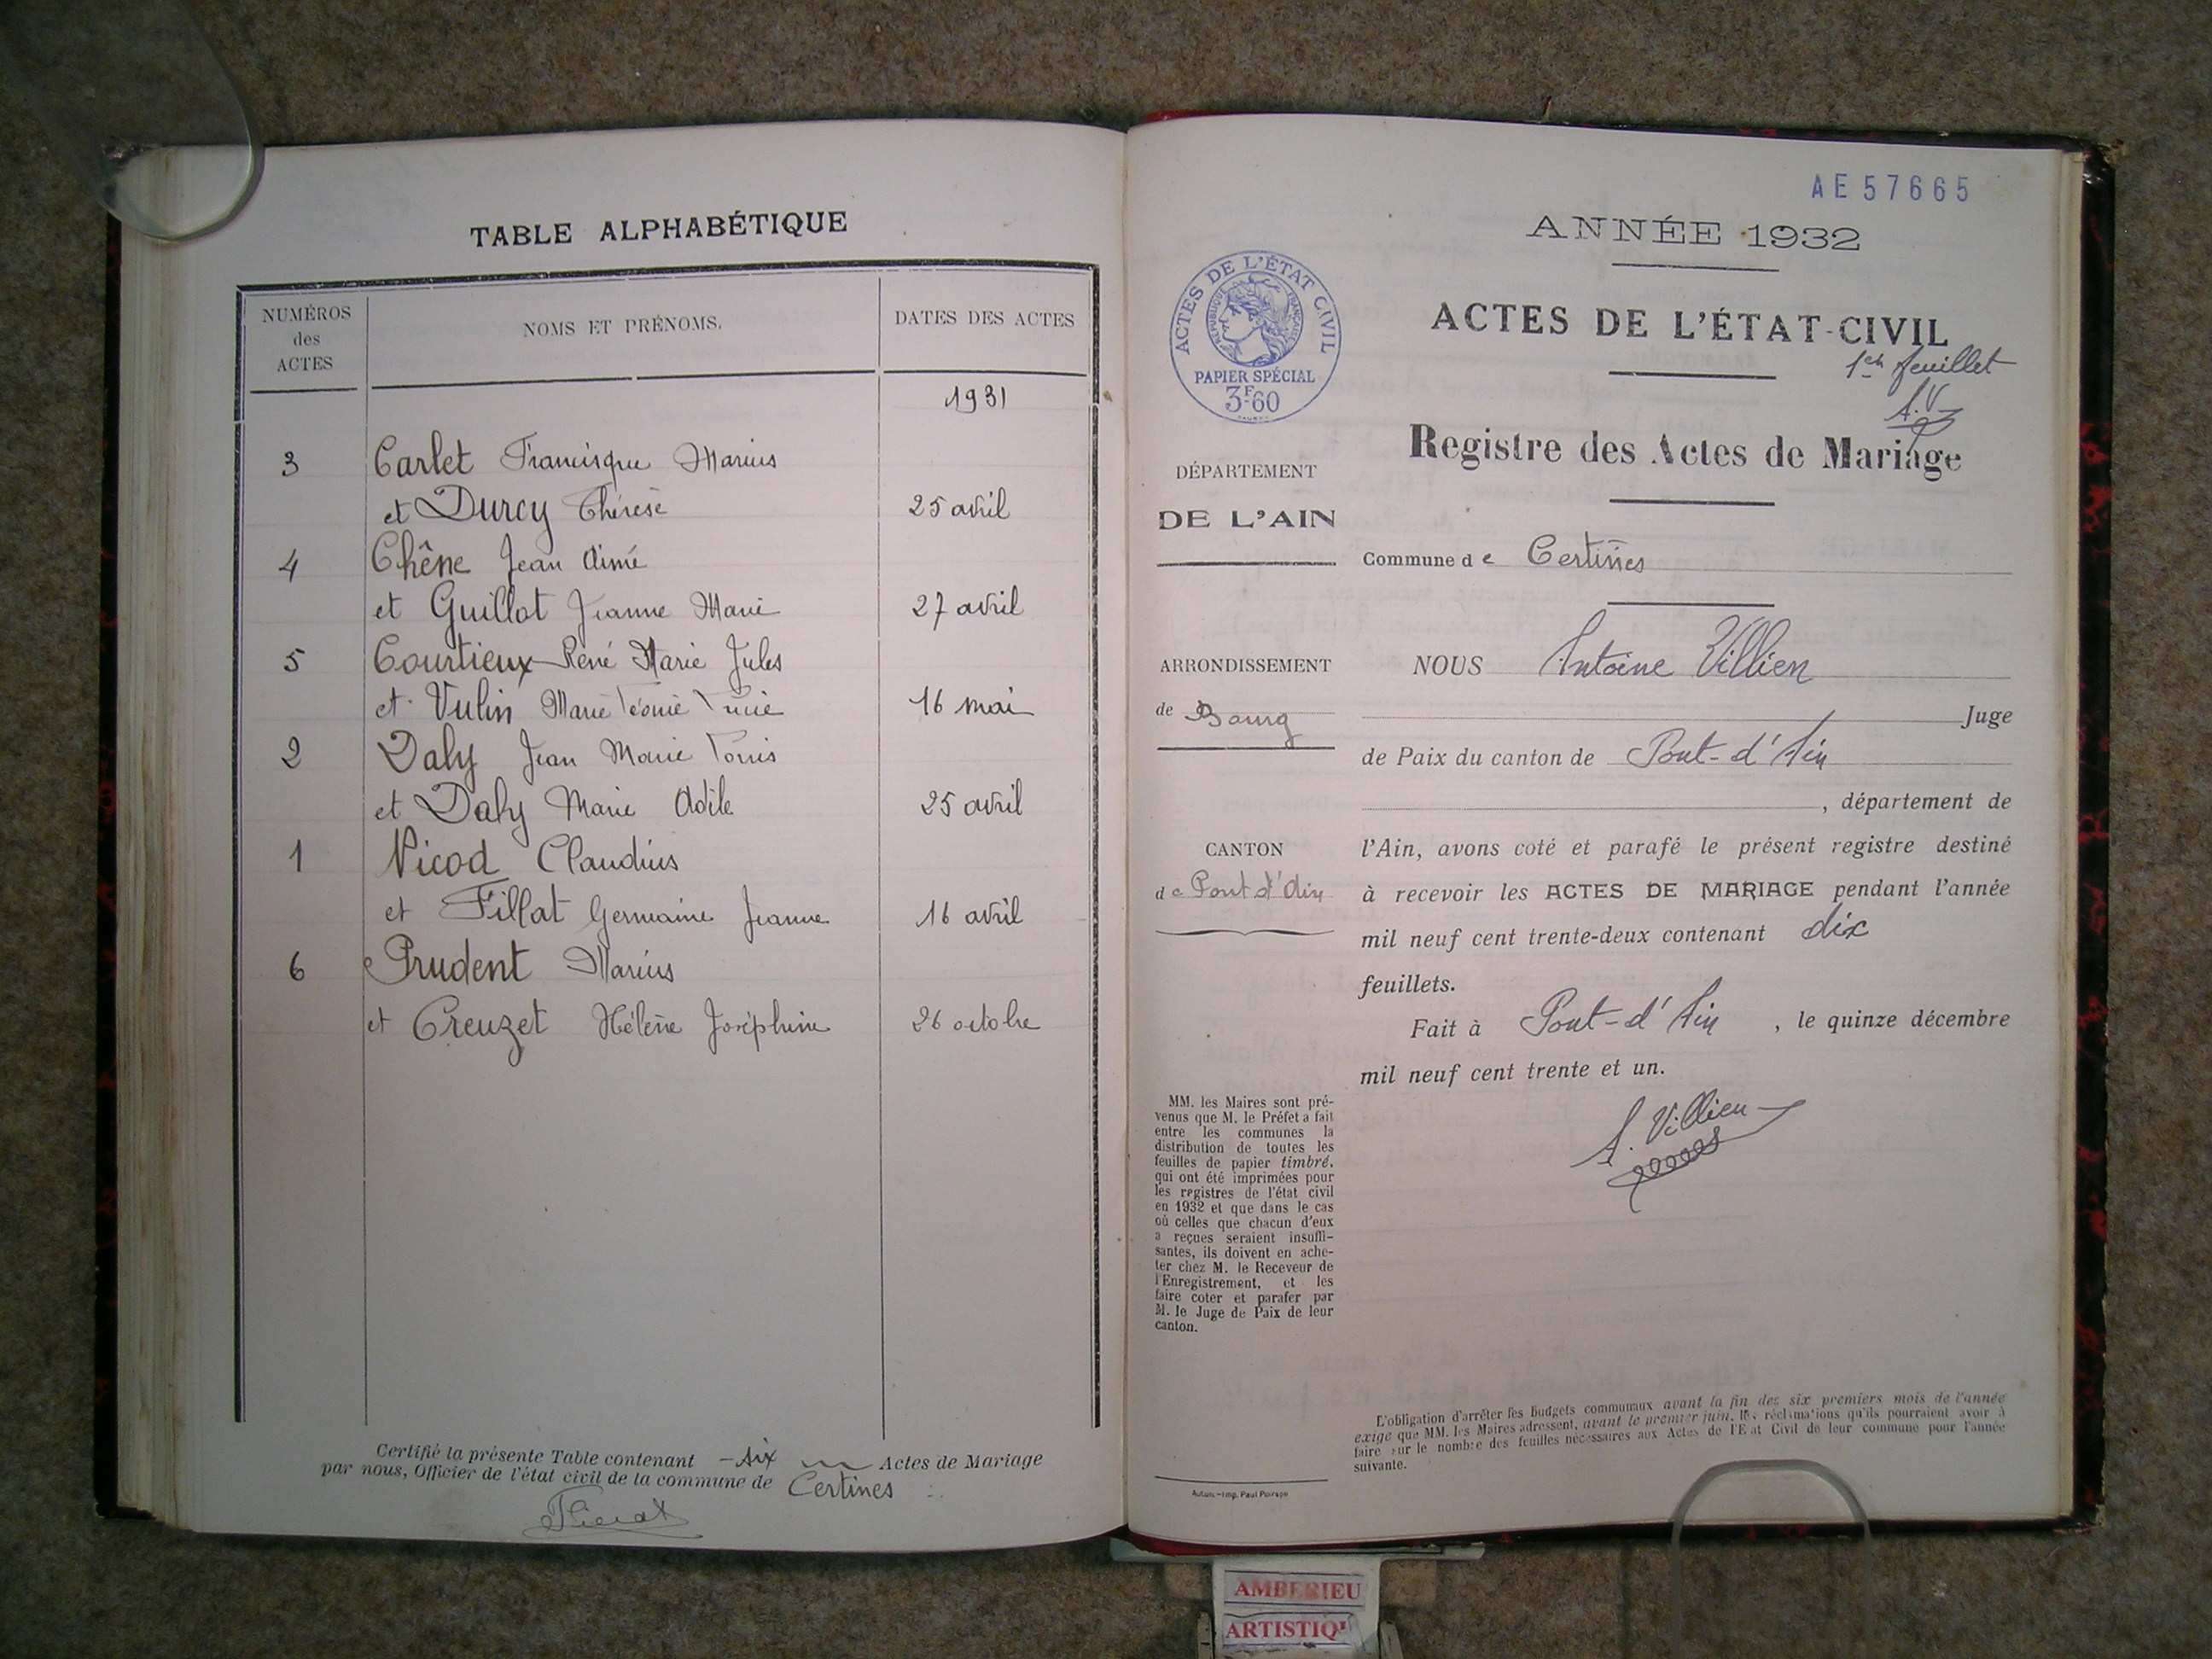 TABLE ALPHABÉTIQUE
NUMÉROS
des
ACTES
NOMS ET PRÉNOMS.
DATES DES ACTES
1931
3 Carlet Francisque Marius
et Durcy Thérèse 25 avril
4 Chêne Jean Aimé
et Guillot Jeanne Marie 27 avril
5 Courtieux René Marie Jules
et Vulin Marie Léonie Lucie 16 mai
2 Daly Jean Marie Louis
et Daly Marie Adèle 25 avril
1 Nicod Claudius
et Fillat Germaine Jeanne 16 avril
6 Prudent Marius
et Creuzet Hélène Joséphine 26 octobre
Certifié la présente Table contenant - six Actes de Mariage
par nous, Officier de l'état civil de la commune de Certines
AE57665
ANNÉE 1932
ACTES DE L'ÉTAT CIVIL
RÉPUBLIQUE FRANÇAISE
PAPIER SPÉCIAL
3F60
ACTES DE L'ÉTAT-CIVIL
1er feuillet
A.V
Registre des Actes de Mariage
DÉPARTEMENT
DE L'AIN
Commune de Certines
ARRONDISSEMENT
de Bourg
NOUS Antoine Villien
Juge
de Paix du canton de Pont-d'Ain
, département de
CANTON
de Pont d'Ain
l'Ain, avons coté et parafé le présent registre destiné
à recevoir les ACTES DE MARIAGE pendant l'année
mil neuf cent trente-deux contenant dix
feuillets.
Fait à Pont-d'Ain , le quinze décembre
mil neuf cent trente et un.
A. Villien
MM. les Maires sont pré-
venus que M. le Préfet a fait
entre les communes la
distribution de toutes les
feuilles de papier timbré,
qui ont été imprimées pour
les registres de l'état civil
en 1932 et que dans le cas
où celles que chacun d'eux
a reçues seraient insuffi-
santes, ils doivent en ache-
ter chez M. le Receveur de
l'Enregistrement, et les
faire coter et parafer par
M. le Juge de Paix de leur
canton.
Autun.—Imp. Paul
L'obligation d'arrêter les budgets communaux avant la fin des six premiers mois de l'année
exige que MM. les Maires adressent, avant le premier juin, les réclamations qu'ils pourraient avoir à
faire sur le nombre des feuilles nécessaires aux Actes de l'Etat Civil de leur commune pour l'année
suivante.
AMBERIEU
ARTISTIQ